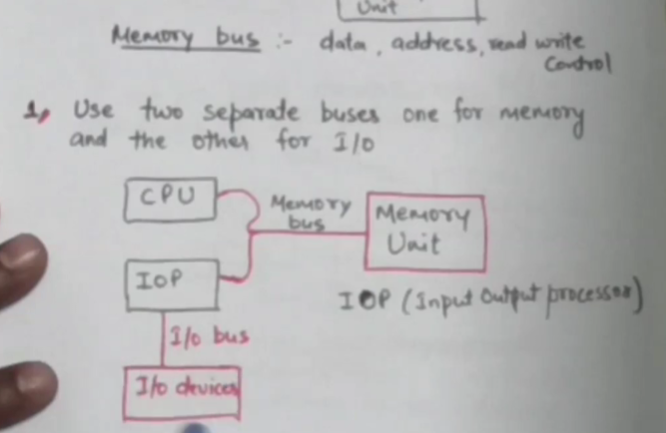 Unit
Memory bus :- data, address, read write
Control
1, Use two separate buses one for memory
and the other for I/o
CPU
Memory
bus
Memory
Unit
IOP
IOP (Input Output processor)
I/o bus
I/o devices